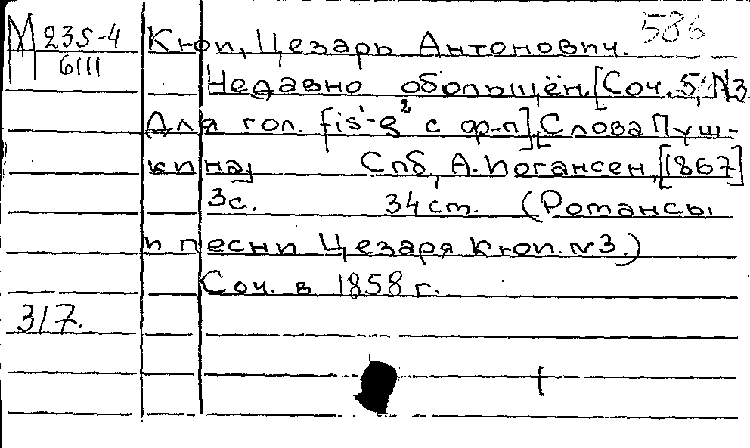 586
М 235-4 Кюи, Цезарь Антонович.
6111
Недавно обольщён. [Соч. 5, N3
Для гол. [fis¹-g² с ф-п] [Слова Пуш-
кина] Спб, А. Иогансен, [1867]
3с. 34 см. (Романсы
и песни Цезаря Кюи. №3.)
Соч. в 1858 г.
317.